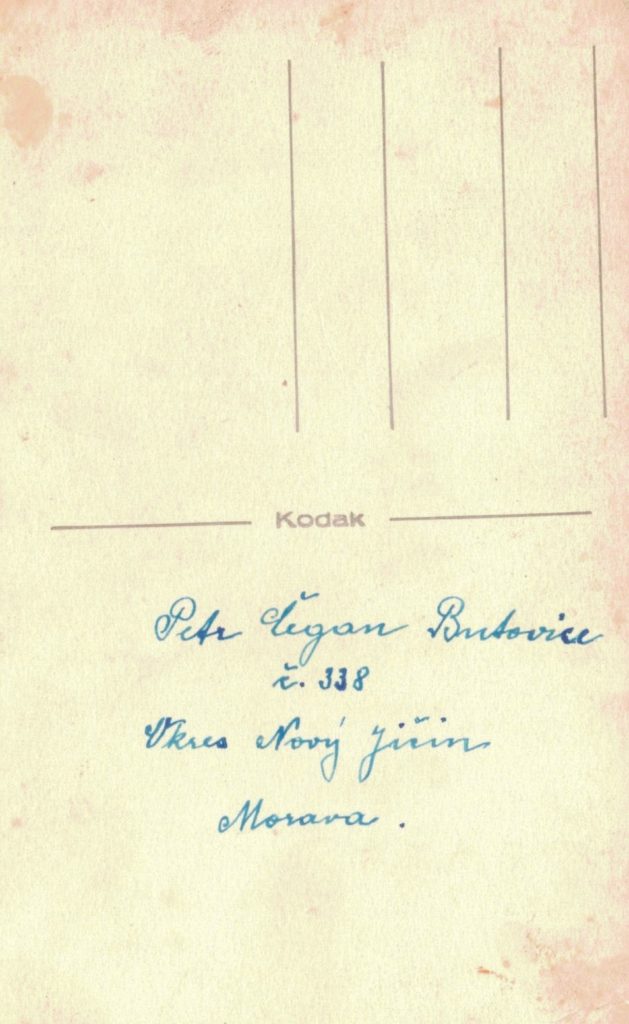 Kodak
Petr Čegan Butovice
č. 338
Okres Nový Jičin
Morava.